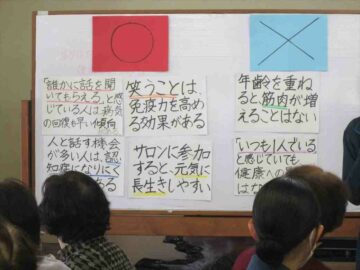 「誰かに話を聞
いてもらえる」と感
じている人は、病気
の回復も早い傾向
人と話す機会
が多い人は、認
知症になりにく
ある
笑うことは、
免疫力を高め
る効果がある
サロンに参加
すると、元気に
長生きしやすい
年齢を重ね
ると、筋肉が増
えることはない
「いつも1人でいる」
と感じていても
健康への
はな